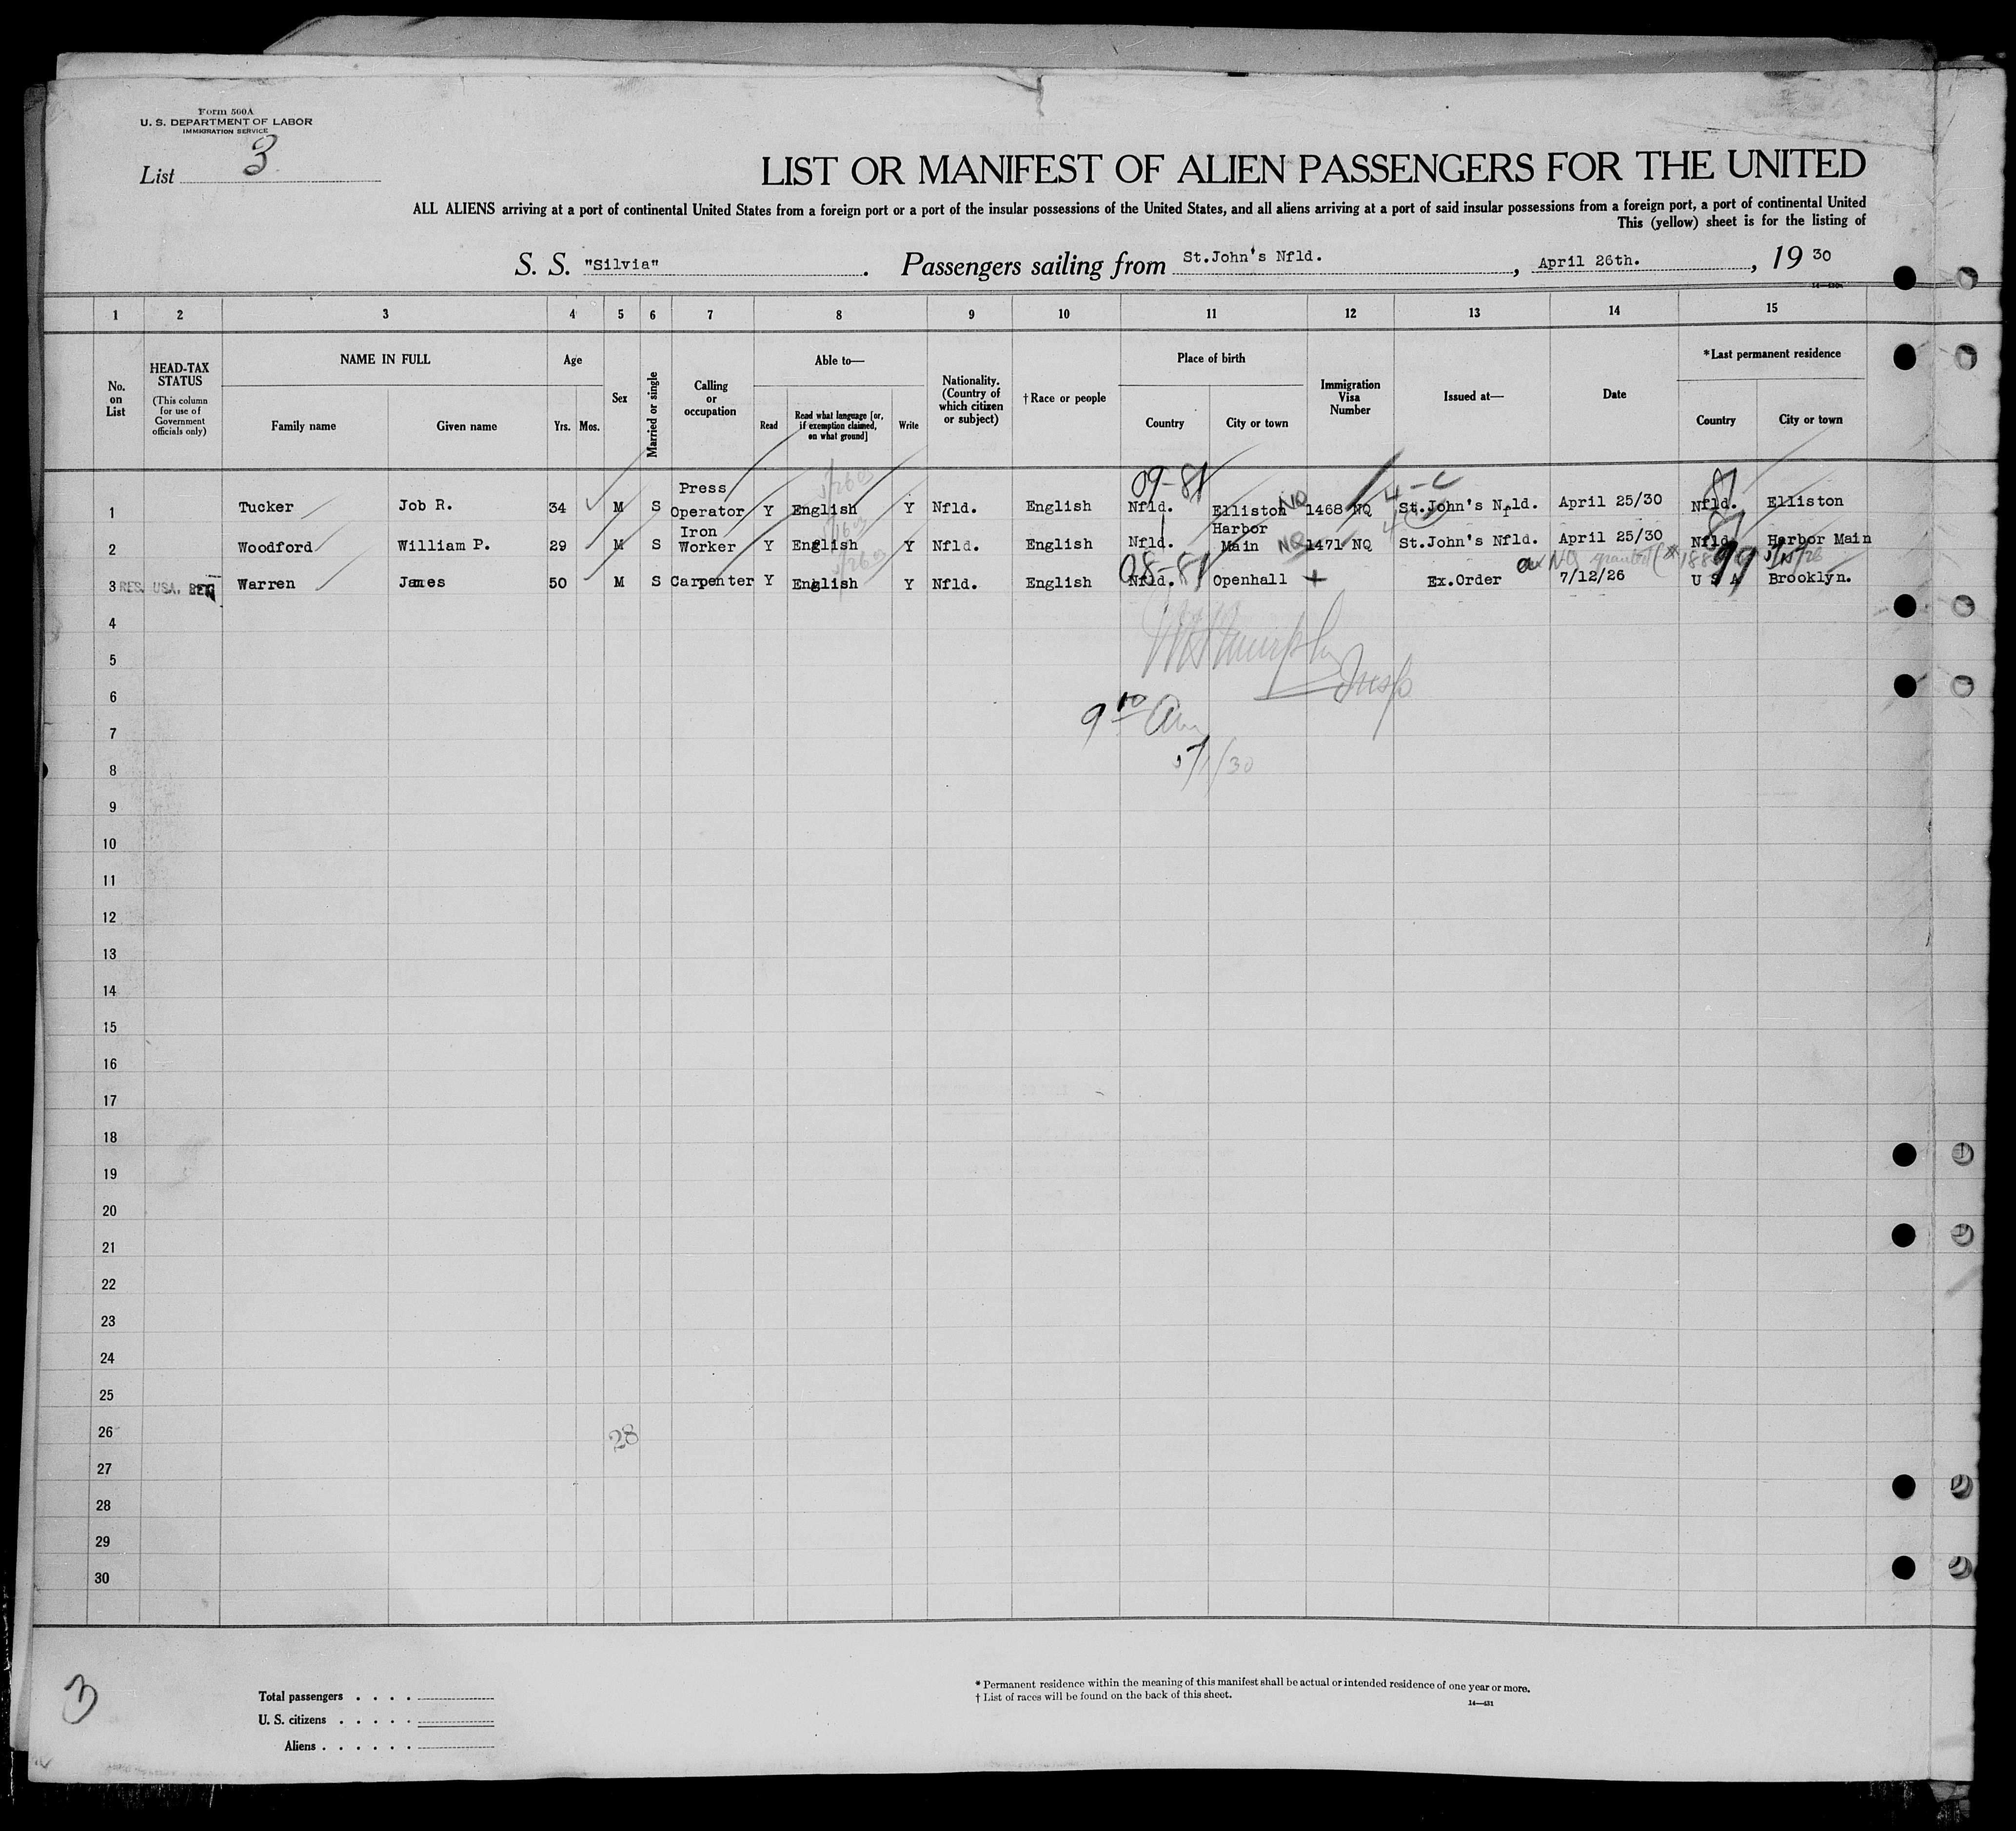 Form 500A
U. S. DEPARTMENT OF LABOR
IMMIGRATION SERVICE
List 3
LIST OR MANIFEST OF ALIEN PASSENGERS FOR THE UNITED
ALL ALIENS arriving at a port of continental United States from a foreign port or a port of the insular possessions of the United States, and all aliens arriving at a port of said insular possessions from a foreign port, a port of continental United
This (yellow) sheet is for the listing of
S. S. "Silvia" . Passengers sailing from St.John's Nfld. , April 26th. , 19 30
1 2 3 4 5 6 7 8 9 10 11 12 13 14 15
No. on List
HEAD-TAX STATUS
(This column for use of Government officials only)
NAME IN FULL
Family name Given name
Age
Yrs. Mos.
Sex
Married or single
Calling or occupation
Able to—
Read
Read what language [or, if exemption claimed, on what ground]
Write
Nationality. (Country of which citizen or subject)
†Race or people
Place of birth
Country City or town
Immigration Visa Number
Issued at—
Date
*Last permanent residence
Country City or town
09-81 4-C 81
1 Tucker Job R. 34 M S Press Operator Y English Y Nfld. English Nfld. Elliston NQ 1468 NQ St.John's Nfld. April 25/30 Nfld. Elliston
2 Woodford William P. 29 M S Iron Worker Y English Y Nfld. English Nfld. Harbor Main NQ 1471 NQ St.John's Nfld. April 25/30 Nfld. Harbor Main
08-81 99
3 RES. USA. Warren James 50 M S Carpenter Y English Y Nfld. English Nfld. Openhall + Ex.Order 7/12/26 U S A Brooklyn.
4
5
6
7
9 10 am
8
5/1/30
9
10
11
12
13
14
15
16
17
18
19
20
21
22
23
24
25
26 28
27
28
29
30
3
Total passengers . . . .
U. S. citizens . . . . .
Aliens . . . . . .
* Permanent residence within the meaning of this manifest shall be actual or intended residence of one year or more.
† List of races will be found on the back of this sheet.
14—431